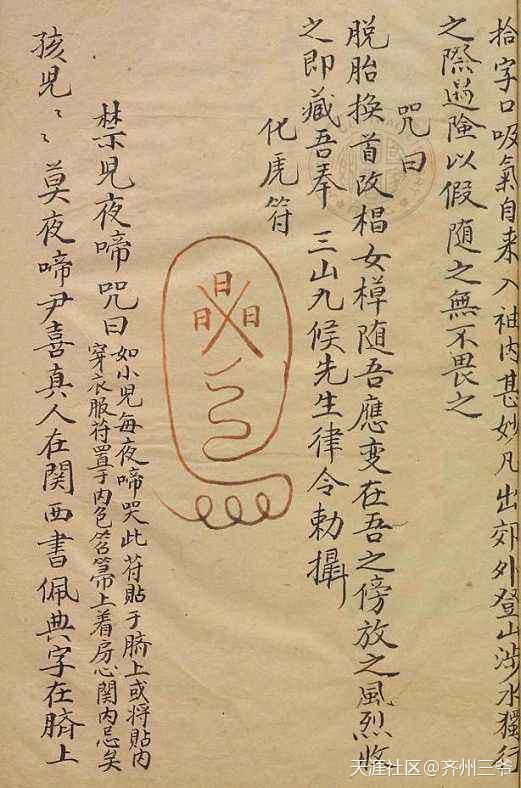 拾字口吸氣自来入袖内甚妙凡出郊外登山涉水獨行
之際遇險以假随之無不畏之
咒曰
脱胎換首改㮣女樟随吾應变在吾之傍放之風烈將
之即藏吾奉 三山九候先生律令勅攝
化虎符
日
日 日
禁児夜啼咒曰 如小児每夜啼哭此符貼于臍上或将貼内
穿衣服符置于内色笤箒上着房心関内忌矣
孩児〻〻莫夜啼尹喜真人在関西書佩典字在臍上
天涯社区@齐州三爷